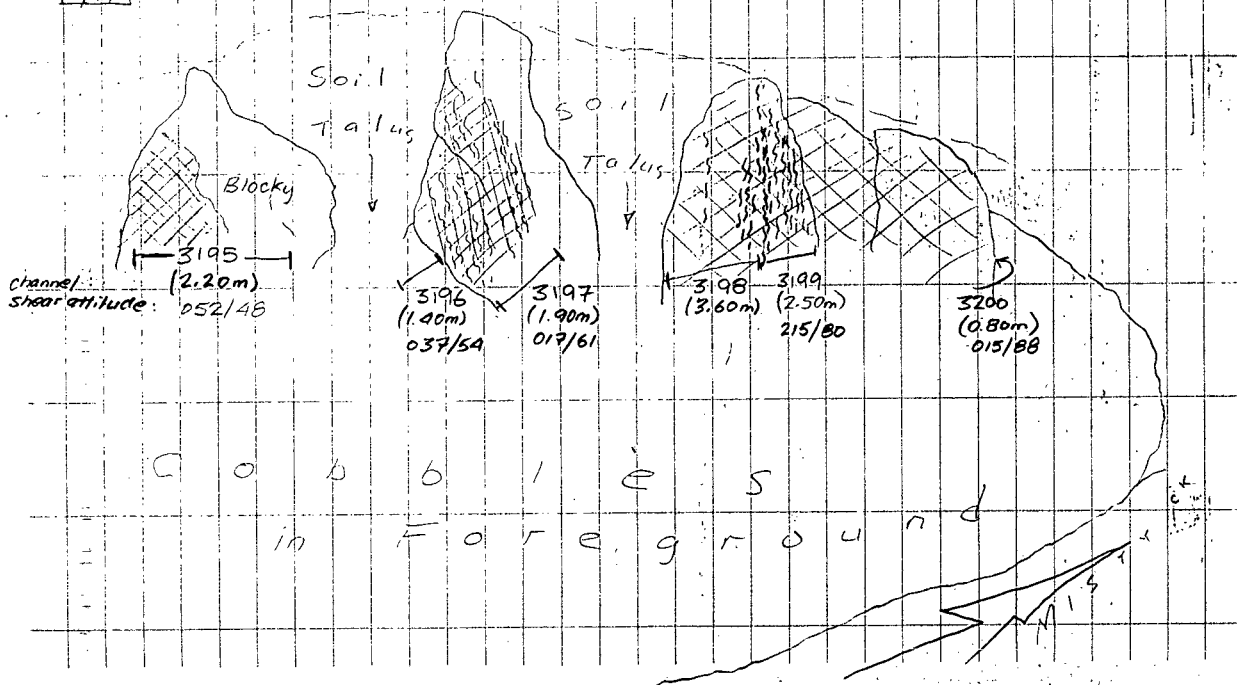 Soil
Talus
Soil
Talus
Blocky
channel
shear attitude:
3195
(2.20m)
052/48
3196
(1.40m)
037/54
3197
(1.90m)
017/61
3198
(3.60m)
3199
(2.50m)
215/80
3200
(0.80m)
015/88
Cobbles
in Foreground